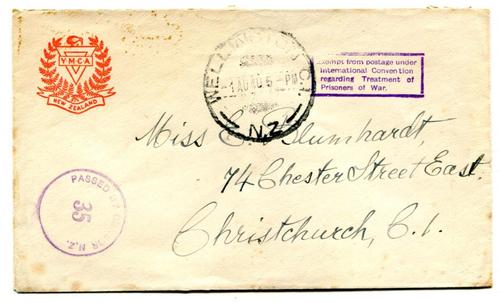 YMCA
NEW ZEALAND
WELLINGTON C.1.
1 AU 40 5 - PM
N.Z.
Exempt from postage under
International Convention
regarding Treatment of
Prisoners of War.
Miss E. Blumhardt,
74 Chester Street East.
Christchurch, C.1.
PASSED BY CENSOR N.Z.
35